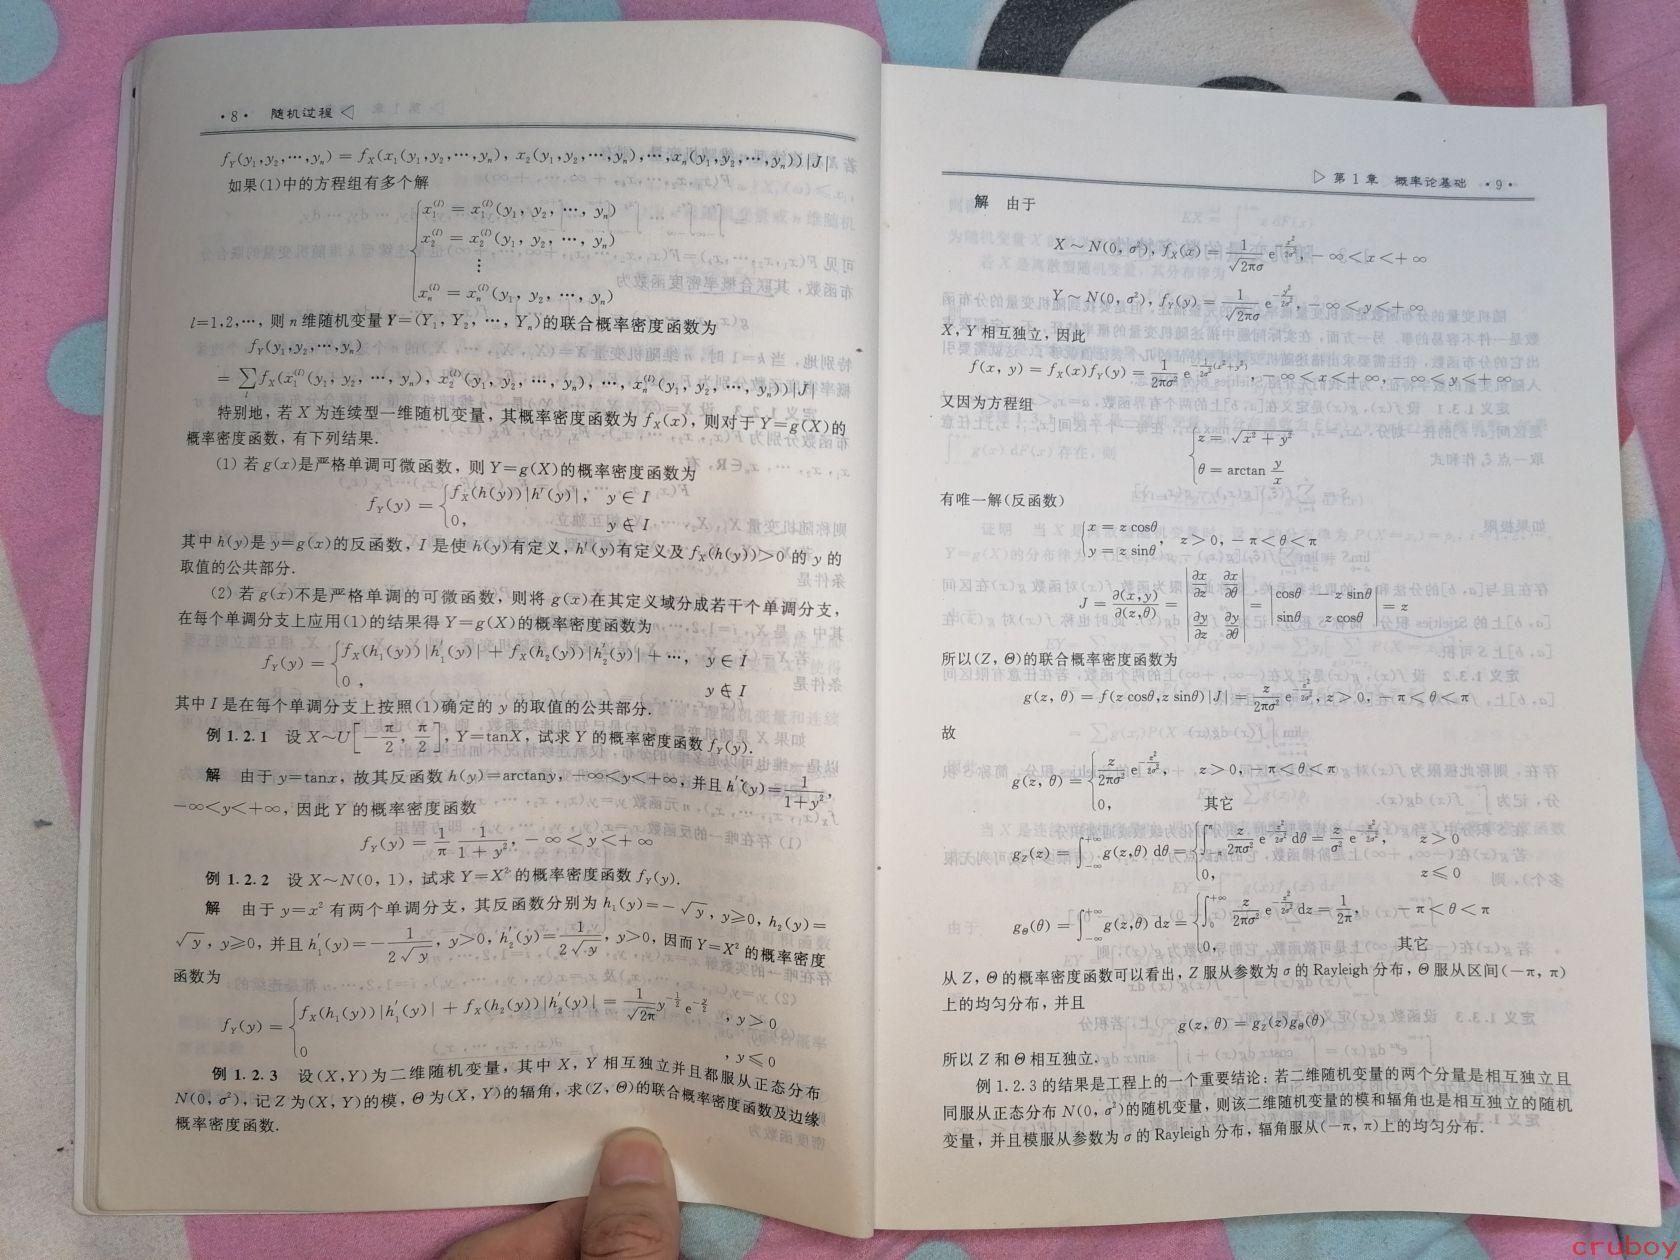 ·8· 随机过程 ◁
f_Y(y₁,y₂,⋯,yₙ) = f_X(x₁(y₁,y₂,⋯,yₙ), x₂(y₁,y₂,⋯,yₙ),⋯,xₙ(y₁,y₂,⋯,yₙ))|J|
如果(1)中的方程组有多个解
x₁^(l) = x₁^(l)(y₁, y₂, ⋯, yₙ)
x₂^(l) = x₂^(l)(y₁, y₂, ⋯, yₙ)
⋮
xₙ^(l) = xₙ^(l)(y₁, y₂, ⋯, yₙ)
l=1,2,⋯, 则 n 维随机变量 Y=(Y₁, Y₂, ⋯, Yₙ)的联合概率密度函数为
f_Y(y₁,y₂,⋯,yₙ)
= ∑_l f_X(x₁^(l)(y₁, y₂, ⋯, yₙ), x₂^(l)(y₁, y₂, ⋯, yₙ), ⋯, xₙ^(l)(y₁, y₂, ⋯, yₙ))|J|
特别地, 若 X 为连续型一维随机变量, 其概率密度函数为 f_X(x), 则对于 Y=g(X)的
概率密度函数, 有下列结果.
(1) 若 g(x)是严格单调可微函数, 则 Y=g(X)的概率密度函数为
f_Y(y) = { f_X(h(y))|h′(y)|, y∈I
0, y∉I
其中 h(y)是 y=g(x)的反函数, I 是使 h(y)有定义, h′(y)有定义及 f_X(h(y))>0 的 y 的
取值的公共部分.
(2) 若 g(x)不是严格单调的可微函数, 则将 g(x)在其定义域分成若干个单调分支,
在每个单调分支上应用(1)的结果得 Y=g(X)的概率密度函数为
f_Y(y) = { f_X(h₁(y))|h₁′(y)| + f_X(h₂(y))|h₂′(y)| + ⋯, y∈I
0, y∉I
其中 I 是在每个单调分支上按照(1)确定的 y 的取值的公共部分.
例 1.2.1 设 X~U[-π/2, π/2], Y=tanX, 试求 Y 的概率密度函数 f_Y(y).
解 由于 y=tanx, 故其反函数 h(y)=arctany, -∞<y<+∞, 并且 h′(y)=1/(1+y²),
-∞<y<+∞, 因此 Y 的概率密度函数
f_Y(y) = 1/π 1/(1+y²), -∞<y<+∞
例 1.2.2 设 X~N(0, 1), 试求 Y=X² 的概率密度函数 f_Y(y).
解 由于 y=x² 有两个单调分支, 其反函数分别为 h₁(y)=-√y, y≥0, h₂(y)=
√y, y≥0, 并且 h₁′(y)=-1/(2√y), y>0, h₂′(y)=1/(2√y), y>0, 因而 Y=X² 的概率密度
函数为
f_Y(y) = { f_X(h₁(y))|h₁′(y)| + f_X(h₂(y))|h₂′(y)| = 1/√(2π) y^(-1/2) e^(-y/2), y>0
0, y≤0
例 1.2.3 设(X,Y)为二维随机变量, 其中 X, Y 相互独立并且都服从正态分布
N(0, σ²), 记 Z 为(X, Y)的模, Θ 为(X, Y)的辐角, 求(Z, Θ)的联合概率密度函数及边缘
概率密度函数.
▷ 第 1 章 概率论基础 ·9·
解 由于
X ~ N(0, σ²), f_X(x) = 1/(√(2π)σ) e^(-x²/(2σ²)), -∞<x<+∞
Y ~ N(0, σ²), f_Y(y) = 1/(√(2π)σ) e^(-y²/(2σ²)), -∞<y<+∞
X, Y 相互独立, 因此
f(x, y) = f_X(x)f_Y(y) = 1/(2πσ²) e^(-1/(2σ²)(x²+y²)), -∞<x<+∞, -∞<y<+∞
又因为方程组
z = √(x²+y²)
θ = arctan y/x
有唯一解(反函数)
x = z cosθ
y = z sinθ, z>0, -π<θ<π
J = ∂(x,y)/∂(z,θ) = |∂x/∂z ∂x/∂θ; ∂y/∂z ∂y/∂θ| = |cosθ -z sinθ; sinθ z cosθ| = z
所以(Z, Θ)的联合概率密度函数为
g(z, θ) = f(z cosθ,z sinθ)|J| = z/(2πσ²) e^(-z²/(2σ²)), z>0, -π<θ<π
故
g(z, θ) = { z/(2πσ²) e^(-z²/(2σ²)), z>0, -π<θ<π
0, 其它
g_Z(z) = ∫_{-∞}^{+∞} g(z,θ) dθ = { ∫_{-π}^{π} z/(2πσ²) e^(-z²/(2σ²)) dθ = z/σ² e^(-z²/(2σ²)), z>0
0, z≤0
g_Θ(θ) = ∫_{-∞}^{+∞} g(z,θ) dz = { ∫_0^{+∞} z/(2πσ²) e^(-z²/(2σ²)) dz = 1/(2π), -π<θ<π
0, 其它
从 Z, Θ 的概率密度函数可以看出, Z 服从参数为 σ 的 Rayleigh 分布, Θ 服从区间(-π, π)
上的均匀分布, 并且
g(z, θ) = g_Z(z)g_Θ(θ)
所以 Z 和 Θ 相互独立.
例 1.2.3 的结果是工程上的一个重要结论: 若二维随机变量的两个分量是相互独立且
同服从正态分布 N(0, σ²)的随机变量, 则该二维随机变量的模和辐角也是相互独立的随机
变量, 并且模服从参数为 σ 的 Rayleigh 分布, 辐角服从(-π, π)上的均匀分布.
cruboy